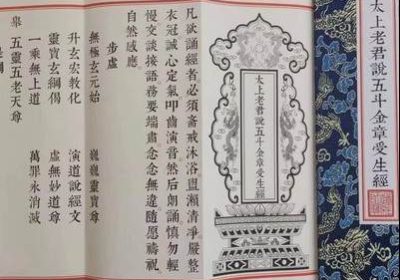 太上老君說五斗金章受生經
太上老君說五斗金章受生經
凡欲誦經者必須齋戒沐浴盥漱清淨嚴整
衣冠誠心定氣叩齒演音然后朗誦慎勿輕
慢交談接語務要端肅念念無違隨願禱祝
自然感應
步虛
無極玄元始　巍巍靈寶尊
升玄宏教化　演道說經文
靈寶玄綱偈　虛無妙道尊
一乘無上道　萬罪永消滅
舉　五靈五老天尊